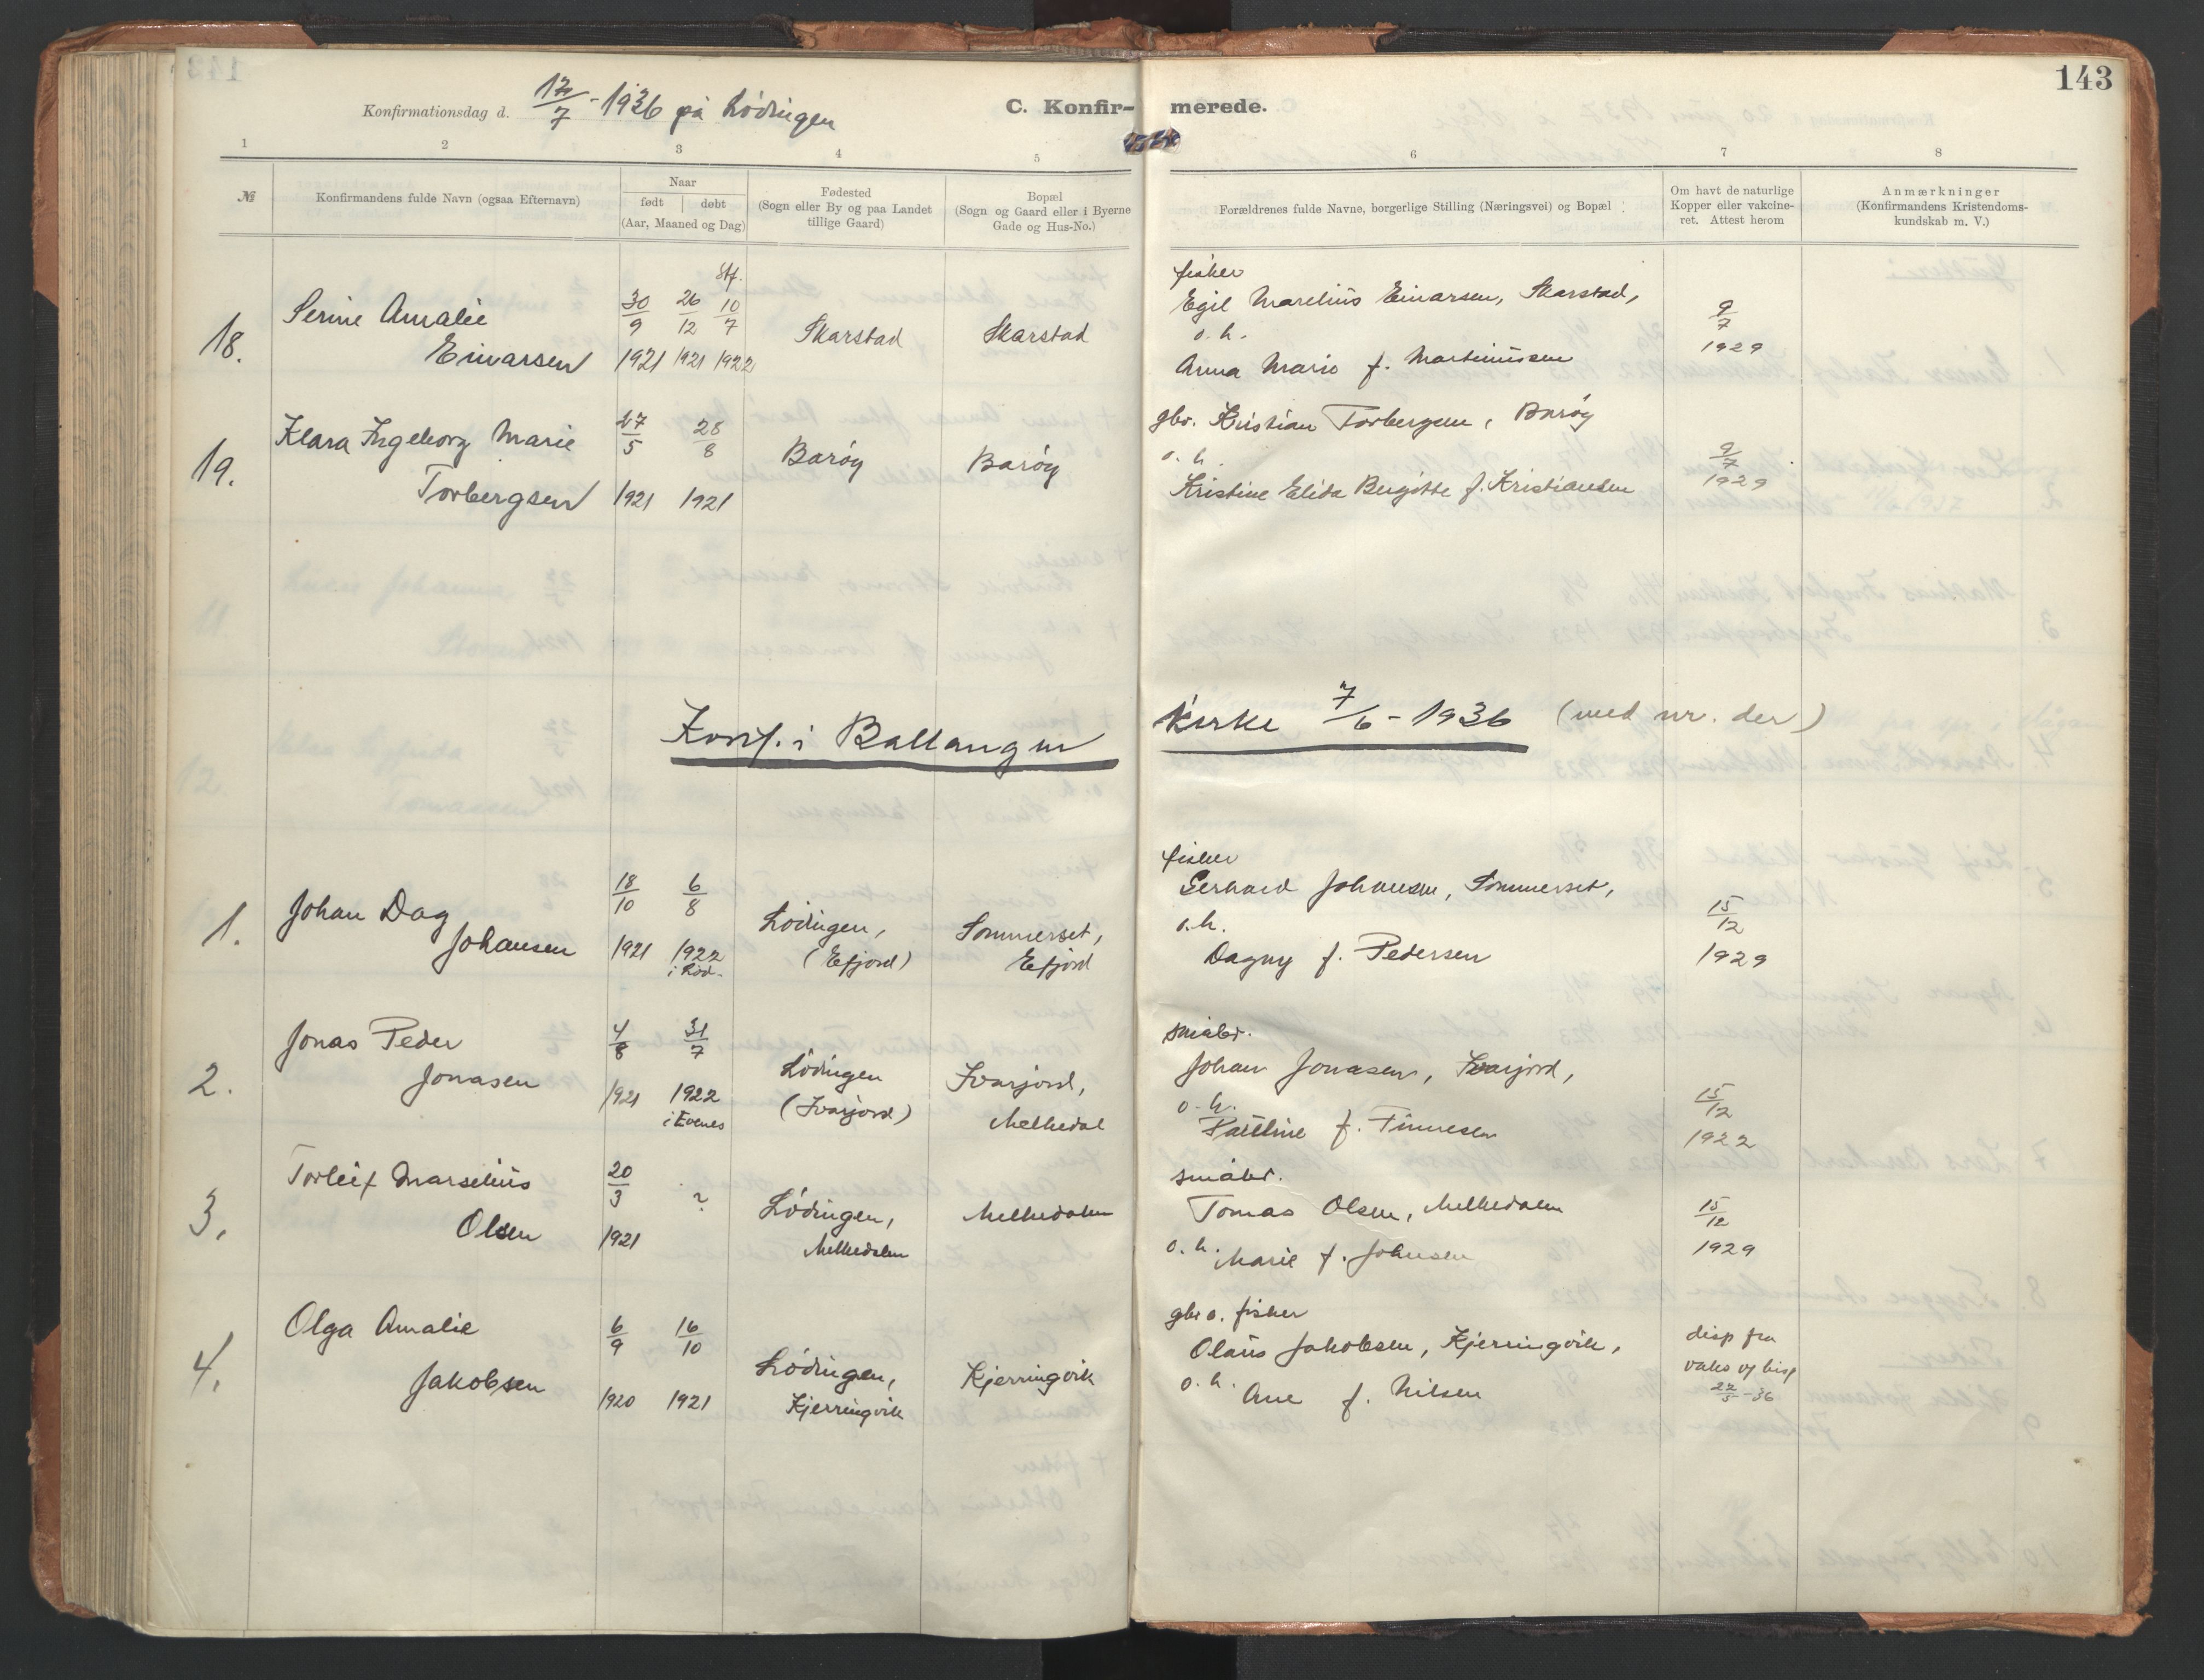 143
Konfirmationsdag d. 12/7 - 1936 på Lödingen
C. Konfir- merede.
1 2 3 4 5 6 7 8
№
Konfirmandens fulde Navn (ogsaa Efternavn)
Naar
født | døbt
(Aar, Maaned og Dag)
Fødested
(Sogn eller By og paa Landet
tillige Gaard)
Bopæl
(Sogn og Gaard eller i Byerne
Gade og Hus-No.)
Forældrenes fulde Navne, borgerlige Stilling (Næringsvei) og Bopæl
Om havt de naturlige
Kopper eller vakcine-
ret. Attest herom
Anmærkninger
(Konfirmandens Kristendoms-
kundskab m. V.)
18.
Serine Amalie
Einarsen
30/9 1921
26/12 1921
Stf. 10/7 1922
Skarstad
Skarstad
fisker
Egil Marelius Einarsen, Skarstad,
o. h.
Anna Marie f. Martinussen
9/7
1929
19.
Klara Ingeborg Marie
Torbergsen
27/5 1921
28/8 1921
Barøy
Barøy
gbr. Kristian Torbergsen, Barøy
o. h.
Kristine Elida Bergitte f. Kristiansen
9/7
1929
Konf. i Ballangen kirke 7/6 - 1936 (med nr. der)
1.
Johan Dag
Johansen
18/10 1921
6/8 1922
i Löd.
Lödingen,
(Efjord)
Sommerset,
Efjord
fisker
Gerhard Johansen, Sommerset,
o.h.
Dagny f. Pedersen
15/12
1929
2.
Jonas Peder
Jonasen
4/8 1921
31/7 1922
i Evenes
Lödingen
(Ivarjord)
Ivarjord,
Melkedal
småbr.
Johan Jonasen, Ivarjord,
o. h.
Pauline f. Finnesen
15/12
1922
3.
Torleif Marselius
Olsen
20/3 1921
?
Lödingen,
Melkedalen
Melkedalen
småbr.
Tomas Olsen, Melkedalen
o. h. Marie f. Johnsen
15/12
1929
4.
Olga Amalie
Jakobsen
6/9 1920
16/10 1921
Lödingen,
Kjerringvik
Kjerringvik
gbr o. fisker
Olaus Jakobsen, Kjerringvik,
o. h. Ane f. Nilsen
disp fra
vaks v/ bisp
27/5 - 36